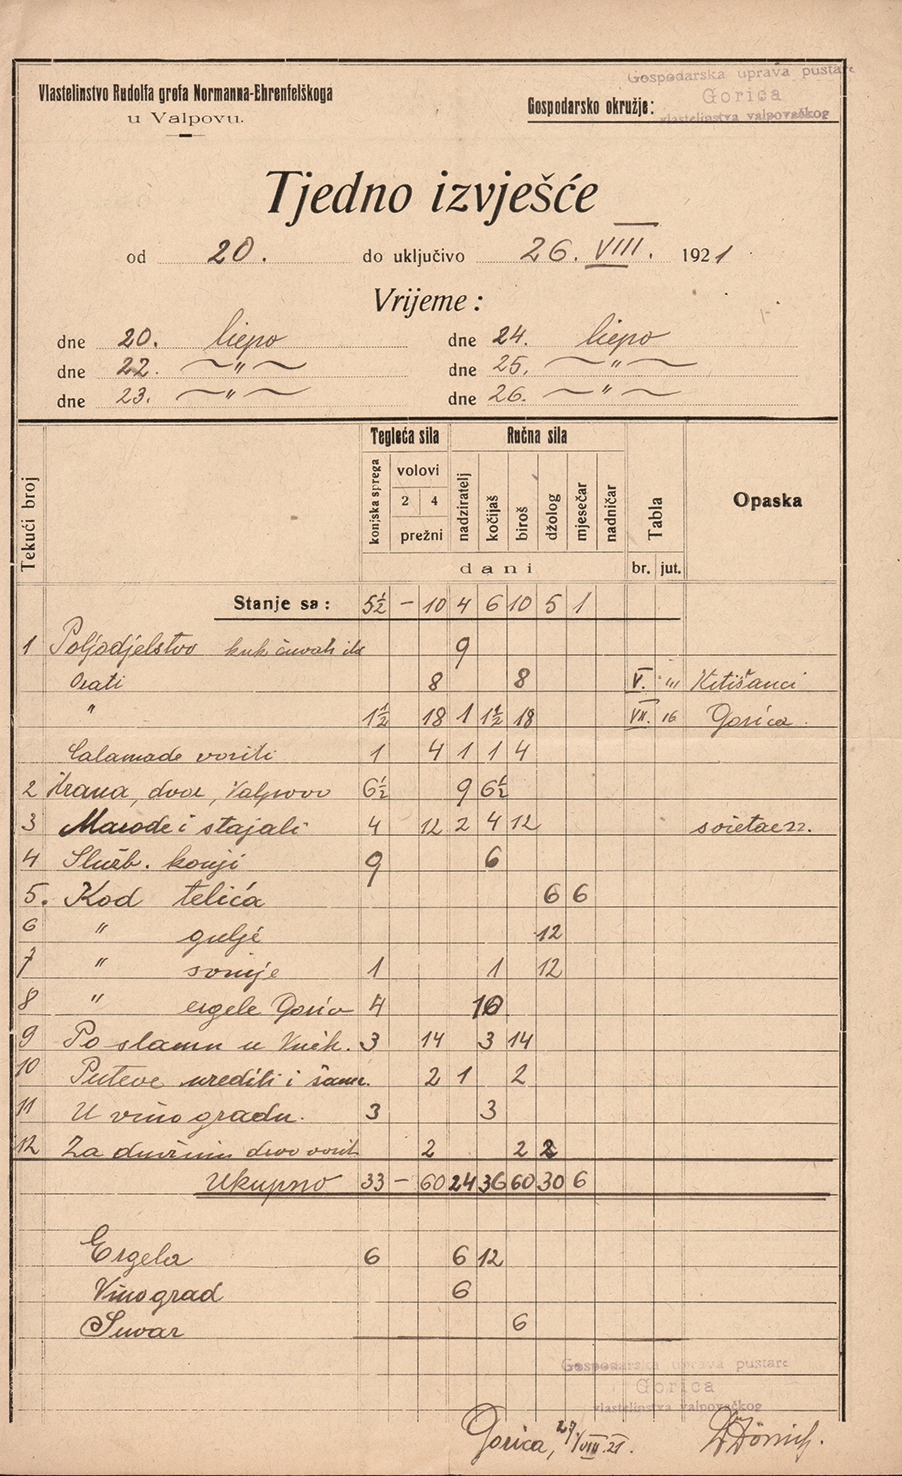 Vlastelinstvo Rudolfa grofa Normanna-Ehrenfelškoga
u Valpovu.
Gospodarsko okružje:
Gospodarska uprava pustare
Gorica
vlastelinstva valpovačkog
Tjedno izvješće
od 20. do uključivo 26. VIII. 1921
Vrijeme:
dne 20. liepo dne 24. liepo
dne 22. 〃 dne 25. 〃
dne 23. 〃 dne 26. 〃
Tekući broj
Tegleća sila Ručna sila
konjska sprega volovi 2 4 prežni nadziratelj kočijaš biroš džolog mjesečar nadničar Tabla Opaska
dani br. jut.
Stanje sa: 5½ – 10 4 6 10 5 1
1 Poljodjelstvo kuk čuvati 9
Orati 8 8 V. III
〃 1½ 18 1 1½ 18 VII. 16 Gorica
Calamade voziti 1 4 1 1 4
2 Hrana, dvor, Valpovo 6½ 9 6½
3 Marode i stajali 4 12 2 4 12
4 Služb. konji 9 6
5. Kod telića 6 6
6 〃 gulje 12
7 〃 svinje 1 1 12
8 〃 ergele 4 10
9 Po slamu u 3 14 3 14
10 Puteve urediti i 2 1 2
11 U vinogradu. 3 3
12 Za drvo voziti 2 2 2
Ukupno 33 – 60 24 36 60 30 6
Ergela 6 6 12
Vinograd 6
Suvar 6
Gospodarska uprava pustare
Gorica
vlastelinstva valpovačkog
Gorica, 27/VIII. 21.